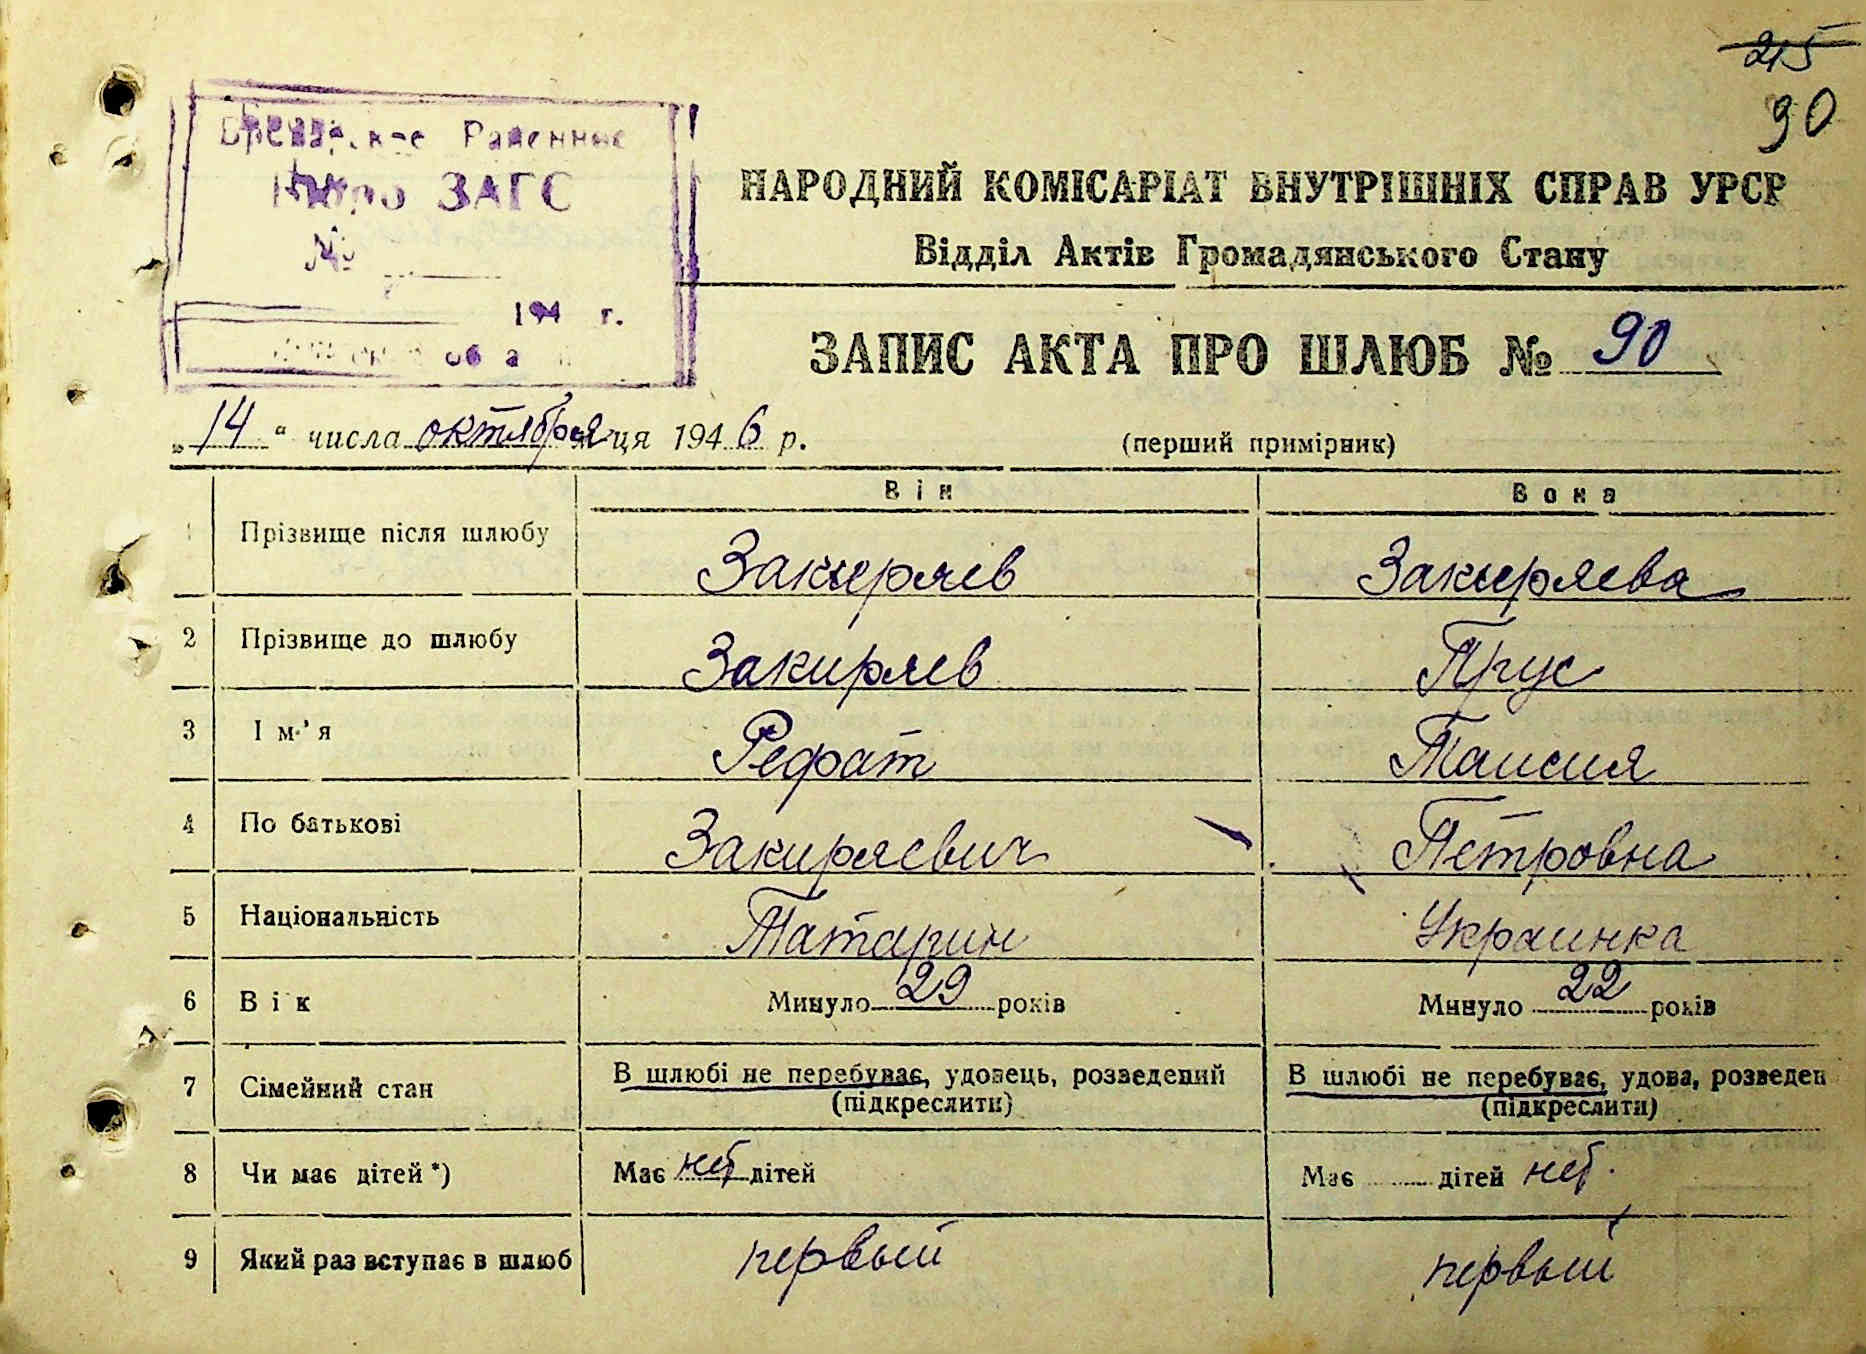 215
90
Районные
Бюро ЗАГС
№
194 г.
НАРОДНИЙ КОМІСАРІАТ ВНУТРІШНІХ СПРАВ УРСР
Відділ Актів Громадянського Стану
ЗАПИС АКТА ПРО ШЛЮБ № 90
„14“ числа октября ця 1946 р. (перший примірник)
Він Вона
1 Прізвище після шлюбу Закиряев Закиряева
2 Прізвище до шлюбу Закиряев Прус
3 Ім'я Рефат Таисия
4 По батькові Закиряевич Петровна
5 Національність Татарин Украинка
6 Вік Минуло 29 років Минуло 22 років
7 Сімейний стан В шлюбі не перебуває, удовець, розведений В шлюбі не перебуває, удова, розведен
(підкреслити) (підкреслити)
8 Чи має дітей *) Має нет дітей Має дітей нет.
9 Який раз вступає в шлюб первый первый